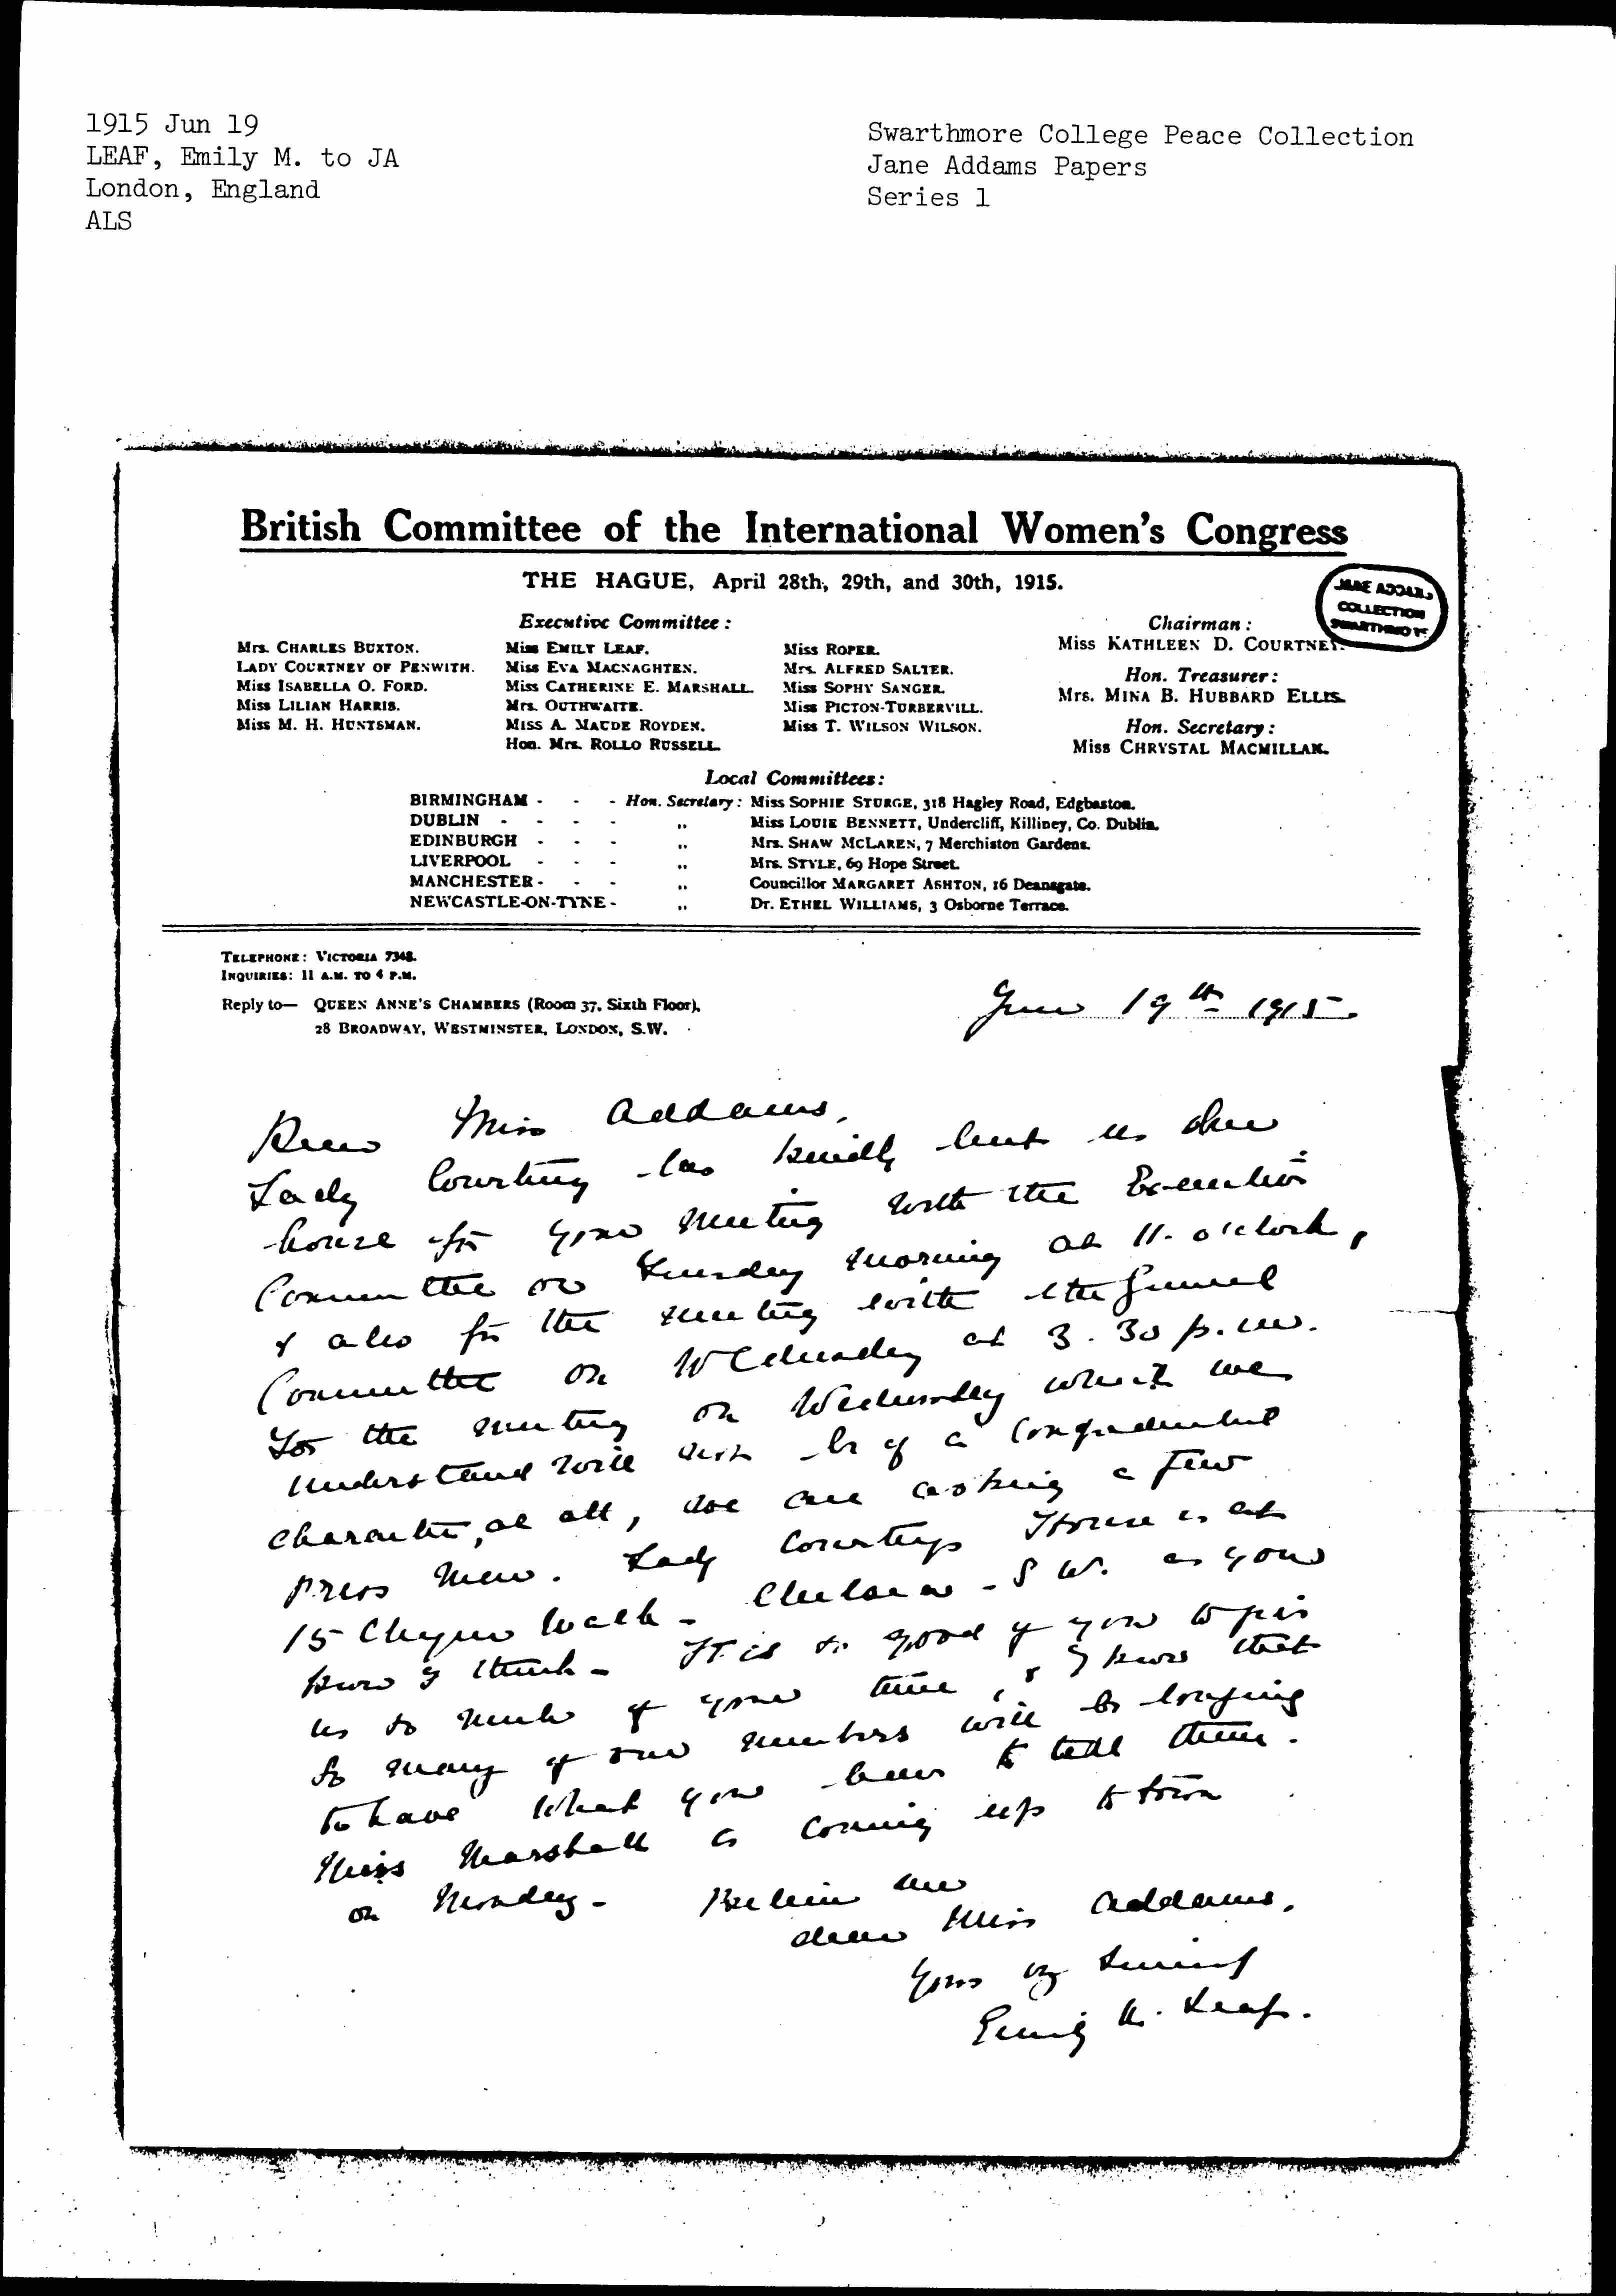 1915 Jun 19
LEAF, Emily M. to JA
London, England
ALS
Swarthmore College Peace Collection
Jane Addams Papers
Series 1
British Committee of the International Women's Congress
THE HAGUE, April 28th, 29th, and 30th, 1915.
JANE ADDAMS
COLLECTION
SWARTHMORE
Executive Committee:
Mrs. CHARLES BUXTON.
LADY COURTNEY OF PENWITH.
Miss ISABELLA O. FORD.
Miss LILIAN HARRIS.
Miss M. H. HUNTSMAN.
Miss EMILY LEAF.
Miss EVA MACNAGHTEN.
Miss CATHERINE E. MARSHALL.
Mrs. OUTHWAITE.
MISS A. MAUDE ROYDEN.
Hon. Mrs. ROLLO RUSSELL.
Miss ROPER.
Mrs. ALFRED SALTER.
Miss SOPHY SANGER.
Miss PICTON-TURBERVILL.
Miss T. WILSON WILSON.
Chairman:
Miss KATHLEEN D. COURTNEY.
Hon. Treasurer:
Mrs. MINA B. HUBBARD ELLIS.
Hon. Secretary:
Miss CHRYSTAL MACMILLAN.
Local Committees:
BIRMINGHAM - - - Hon. Secretary: Miss SOPHIE STURGE, 318 Hagley Road, Edgbaston.
DUBLIN - - - - ,, Miss LOUIE BENNETT, Undercliff, Killiney, Co. Dublin.
EDINBURGH - - - ,, Mrs. SHAW MCLAREN, 7 Merchiston Gardens.
LIVERPOOL - - - ,, Mrs. STYLE, 69 Hope Street.
MANCHESTER - - - ,, Councillor MARGARET ASHTON, 16 Deansgate.
NEWCASTLE-ON-TYNE - ,, Dr. ETHEL WILLIAMS, 3 Osborne Terrace.
TELEPHONE: VICTORIA 7348.
INQUIRIES: 11 A.M. TO 4 P.M.
Reply to— QUEEN ANNE'S CHAMBERS (Room 37, Sixth Floor),
28 BROADWAY, WESTMINSTER, LONDON, S.W.
June 19th 1915.
Dear Miss Addams,
Lady Courtney has kindly lent us her
house for your meeting with the Executive
Committee on Tuesday morning at 11. o'clock,
& also for the meeting with the General
Committee on Wednesday at 3.30 p.m.
For the meeting on Wednesday which we
understand will not be of a confidential
character, at all, we are asking a few
press men. Lady Courtneys House is at
15 Cheyne Walk - Chelsea - S W. as you
know I think - It is so good of you to give
us so much of your time, & I know that
so many of our members will be longing
to hear what you have to tell them.
Miss Marshall is coming up to town
on Monday - Believe me
dear Miss Addams,
Yours v sincerely
Emily M. Leaf.